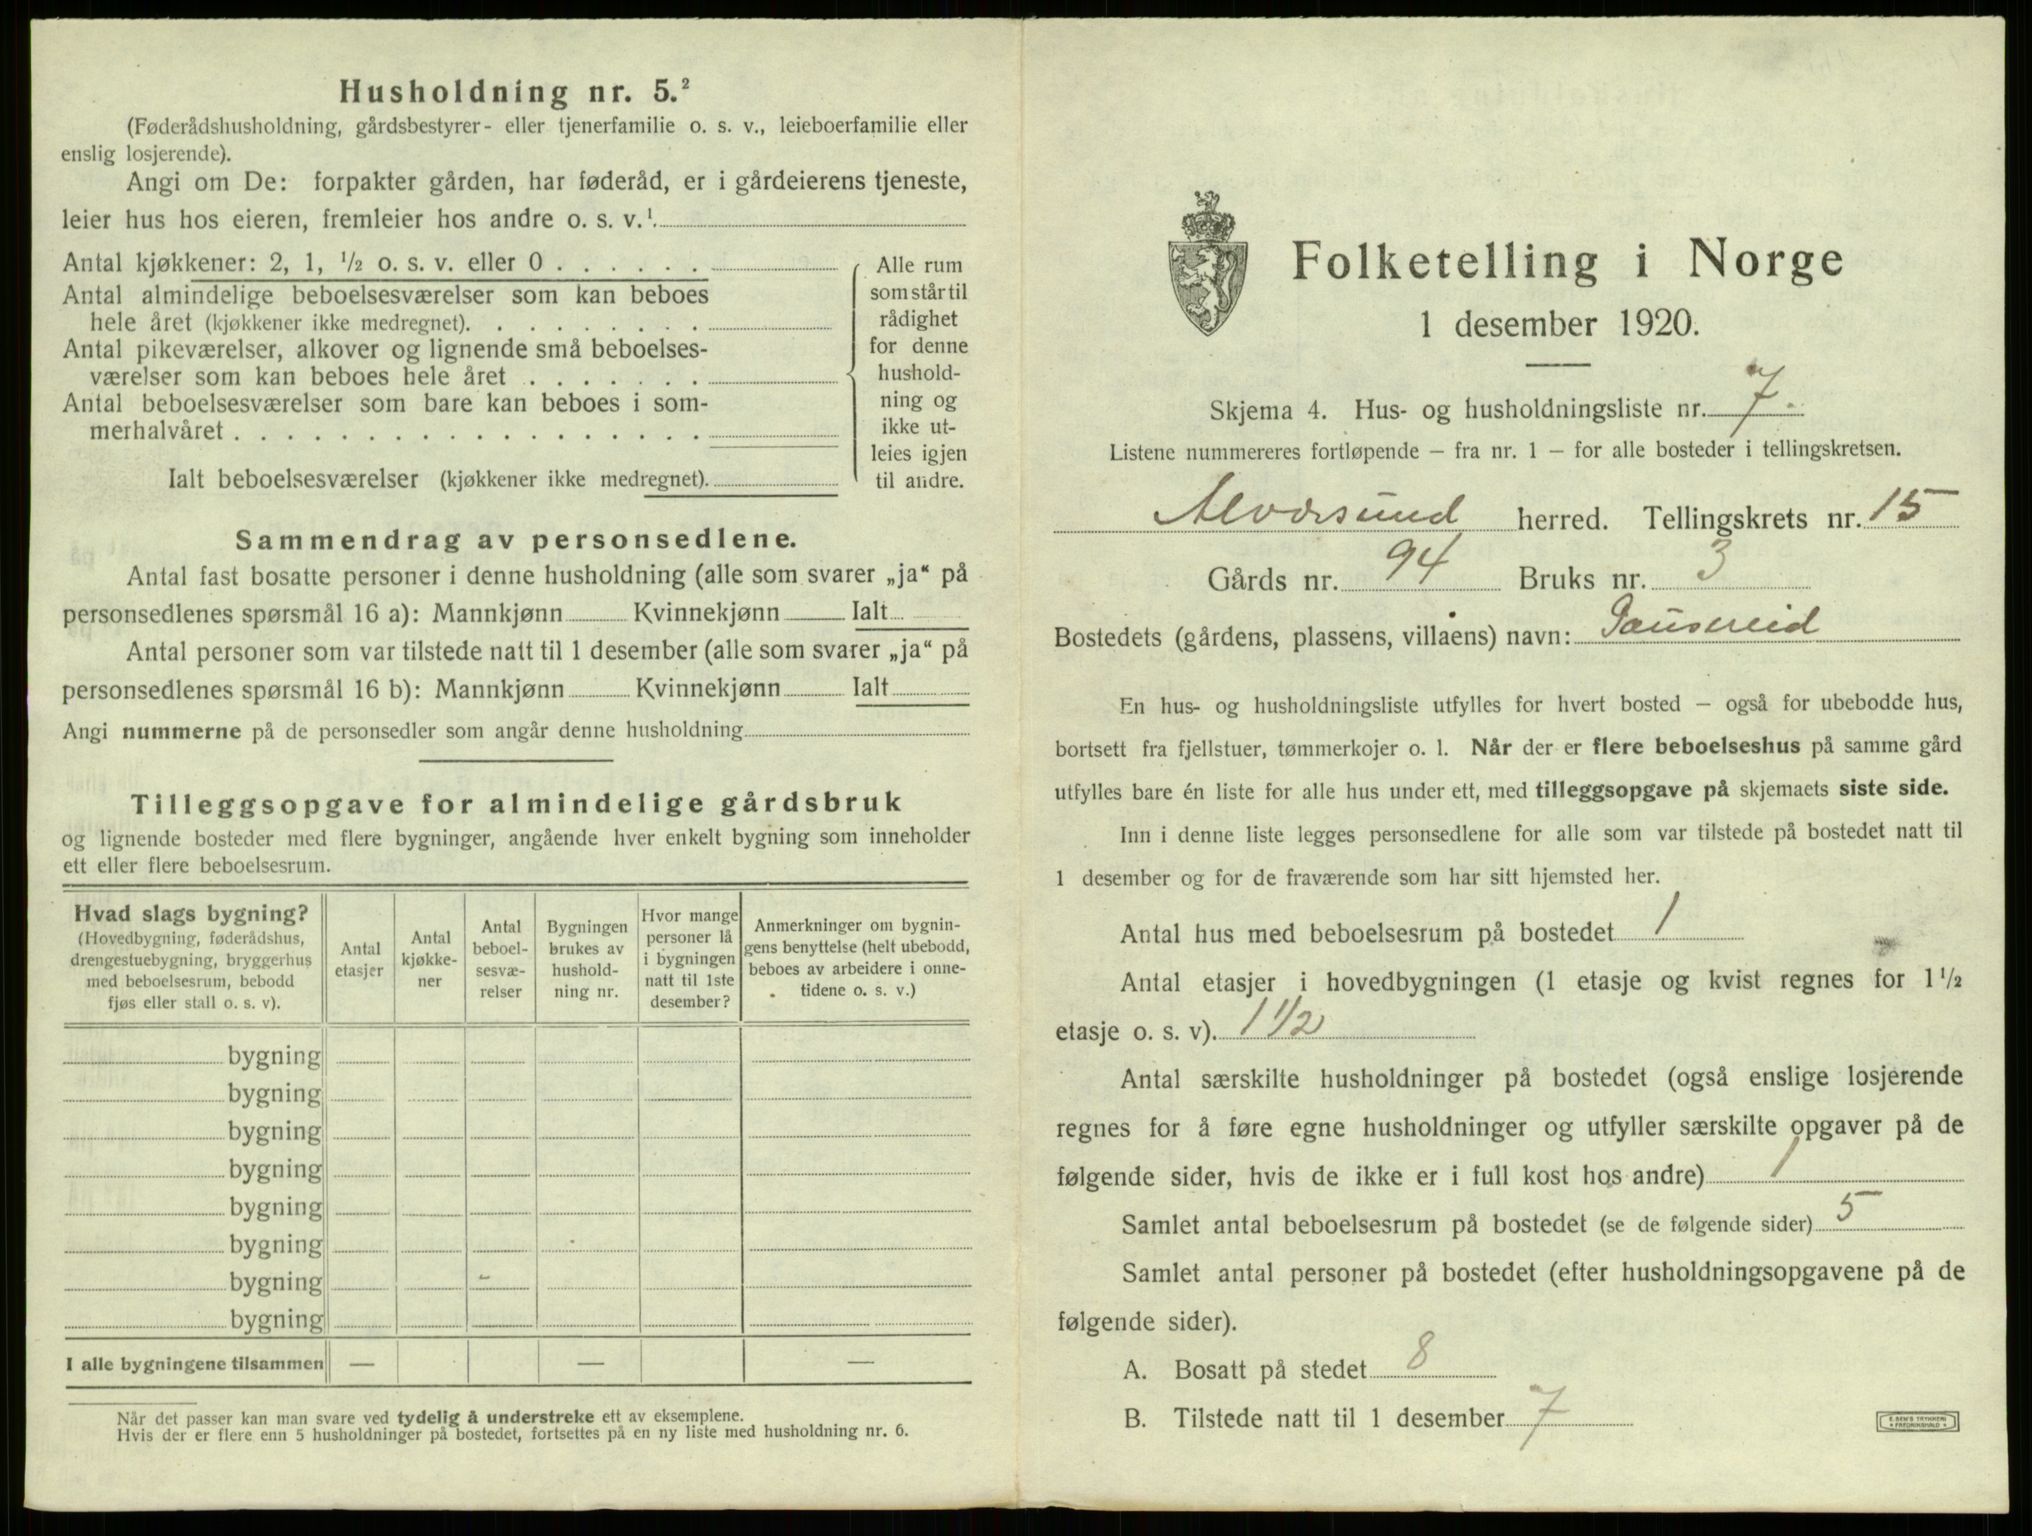 Husholdning nr. 5.²
(Føderådshusholdning, gårdsbestyrer- eller tjenerfamilie o. s. v., leieboerfamilie eller
enslig losjerende).
Angi om De: forpakter gården, har føderåd, er i gårdeierens tjeneste,
leier hus hos eieren, fremleier hos andre o. s. v.¹
Antal kjøkkener: 2, 1, ½ o. s. v. eller 0 . . . . . .
Antal almindelige beboelsesværelser som kan beboes
hele året (kjøkkener ikke medregnet). . . . . . . . .
Antal pikeværelser, alkover og lignende små beboelses-
værelser som kan beboes hele året . . . . . . .
Antal beboelsesværelser som bare kan beboes i som-
merhalvåret . . . . . . . . . . . . . . . . .
Ialt beboelsesværelser (kjøkkener ikke medregnet).
Alle rum
som står til
rådighet
for denne
hushold-
ning og
ikke ut-
leies igjen
til andre.
Sammendrag av personsedlene.
Antal fast bosatte personer i denne husholdning (alle som svarer „ja“ på
personsedlenes spørsmål 16 a): Mannkjønn Kvinnekjønn Ialt
Antal personer som var tilstede natt til 1 desember (alle som svarer „ja“ på
personsedlenes spørsmål 16 b): Mannkjønn Kvinnekjønn Ialt
Angi nummerne på de personsedler som angår denne husholdning
Tilleggsopgave for almindelige gårdsbruk
og lignende bosteder med flere bygninger, angående hver enkelt bygning som inneholder
ett eller flere beboelsesrum.
Hvad slags bygning?
(Hovedbygning, føderådshus,
drengestuebygning, bryggerhus
med beboelsesrum, bebodd
fjøs eller stall o. s. v).
Antal
etasjer
Antal
kjøkke-
ner
Antal
beboel-
sesvæ-
relser
Bygningen
brukes av
hushold-
ning nr.
Hvor mange
personer lå
i bygningen
natt til 1ste
desember?
Anmerkninger om bygnin-
gens benyttelse (helt ubebodd,
beboes av arbeidere i onne-
tidene o. s. v.)
bygning
bygning
bygning
bygning
bygning
bygning
bygning
bygning
I alle bygningene tilsammen — — —
Når det passer kan man svare ved tydelig å understreke ett av eksemplene.
Hvis der er flere enn 5 husholdninger på bostedet, fortsettes på en ny liste med husholdning nr. 6.
Folketelling i Norge
1 desember 1920.
Skjema 4. Hus- og husholdningsliste nr. 7.
Listene nummereres fortløpende – fra nr. 1 – for alle bosteder i tellingskretsen.
Alversund herred. Tellingskrets nr. 15
Gårds nr. 94 Bruks nr. 3
Bostedets (gårdens, plassens, villaens) navn:
En hus- og husholdningsliste utfylles for hvert bosted – også for ubebodde hus,
bortsett fra fjellstuer, tømmerkojer o. l. Når der er flere beboelseshus på samme gård
utfylles bare én liste for alle hus under ett, med tilleggsopgave på skjemaets siste side.
Inn i denne liste legges personsedlene for alle som var tilstede på bostedet natt til
1 desember og for de fraværende som har sitt hjemsted her.
Antal hus med beboelsesrum på bostedet 1
Antal etasjer i hovedbygningen (1 etasje og kvist regnes for 1½
etasje o. s. v). 1 1/2
Antal særskilte husholdninger på bostedet (også enslige losjerende
regnes for å føre egne husholdninger og utfyller særskilte opgaver på de
følgende sider, hvis de ikke er i full kost hos andre) 1
Samlet antal beboelsesrum på bostedet (se de følgende sider) 5
Samlet antal personer på bostedet (efter husholdningsopgavene på de
følgende sider).
A. Bosatt på stedet 8
B. Tilstede natt til 1 desember 7
E. SEM'S TRYKKERI
FREDRIKSHALD